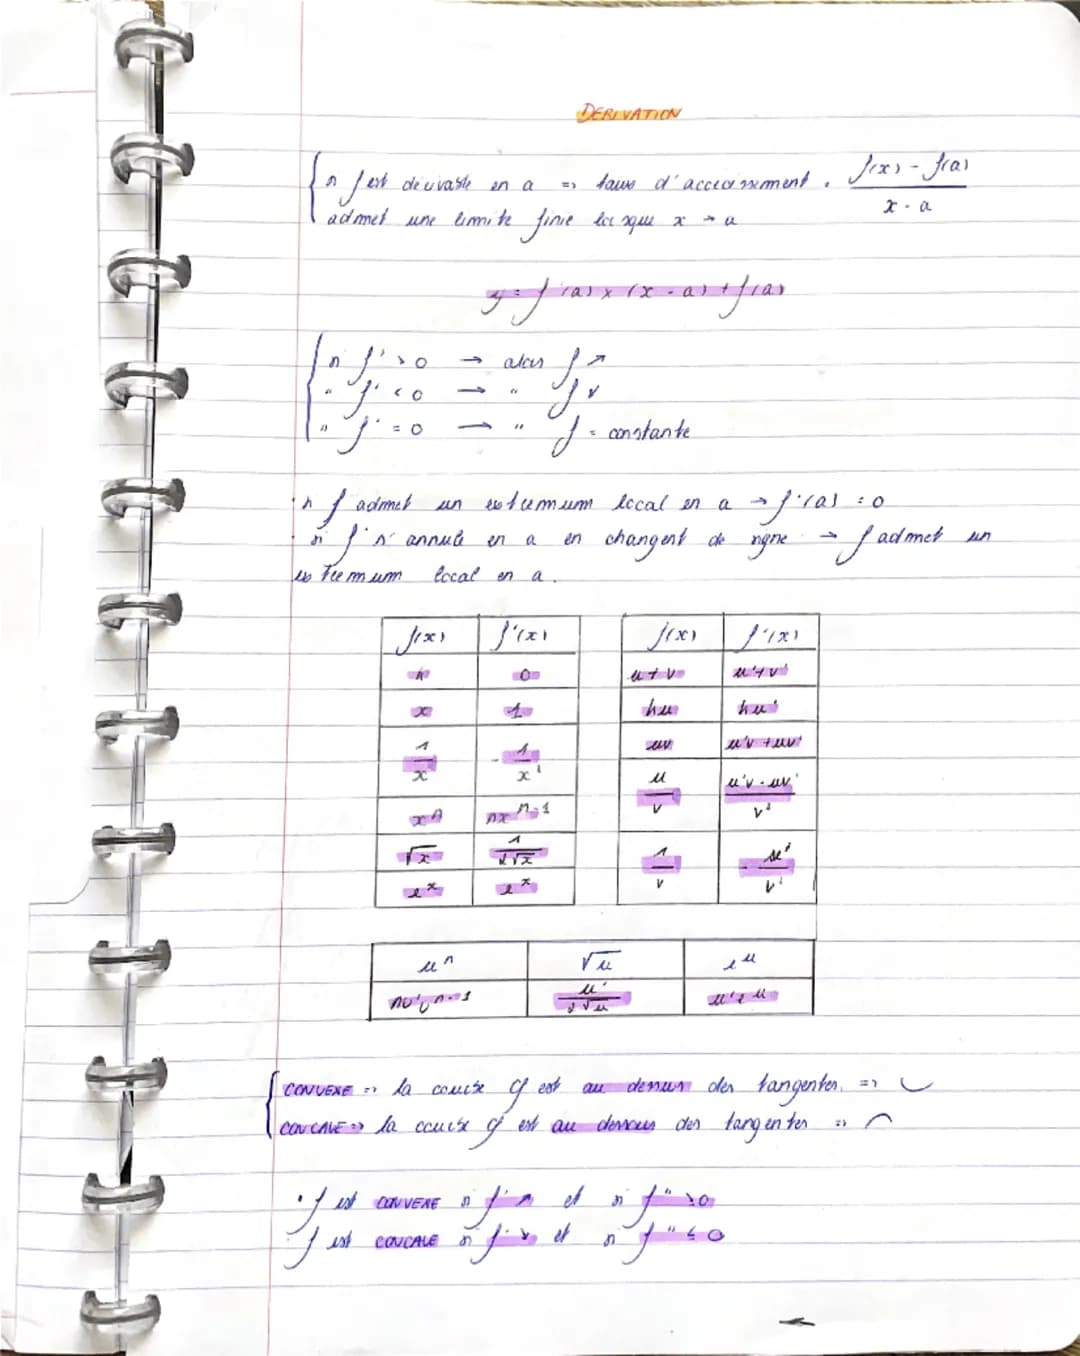 DERIVATION
si f est dérivable en a => taux d'accroissement . f(x) - f(a) / x - a
admet une limite finie lorsque x → a
y = f'(a) x (x - a) + f(a)
si f' > 0 → alors f ↗
" f' < 0 → " f ↘
" f' = 0 → " f = constante
si f admet un extremum local en a → f'(a) = 0
si f' s'annule en a en changent de signe → f admet un
extremum local en a.
f(x) f'(x)
k 0
x 1
1/x - 1/x²
xⁿ nxⁿ⁻¹
√x 1/2√x
eˣ eˣ
f(x) f'(x)
u + v u' + v'
ku ku'
uv u'v + uv'
u/v u'v - uv'/v²
1/v - u'/v²
uⁿ √u eᵘ
nu'uⁿ⁻¹ u'/2√u u'eᵘ
CONVEXE => la courbe Cf est au dessus des tangentes. => ◡
CONCAVE => la courbe Cf est au dessous des tangentes => ◠
• f est CONVEXE si f' ↗ et si f" ≥ 0
f est CONCALE si f' ↘ et si f" ≤ 0
←